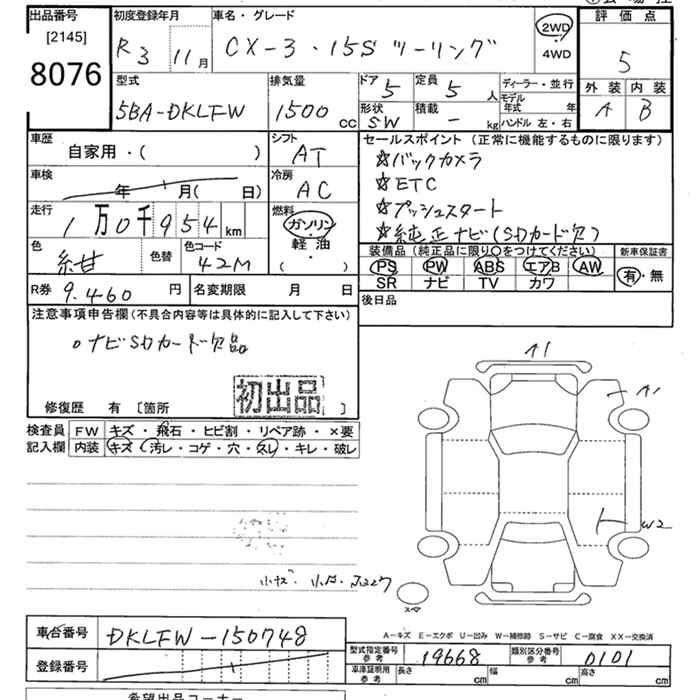 出品番号
[2145]
8076
初度登録年月
R3 11月
車名・グレード
CX-3・15S ツーリング
2WD
4WD
評価点
5
外装 内装
A B
型式
5BA-DKLFW
排気量
1500 cc
ドア
5
形状
SW
定員
5 人
積載
- kg
ディーラー・並行
モデル年式 年
ハンドル 左・右
車歴
自家用・( )
シフト
AT
車検
年 月( 日)
冷房
AC
走行
1万0千954 km
燃料
ガソリン
軽油
( ・ )
色
紺
色替
色コード
42M
R券 9.460 円
名変期限 月 日
セールスポイント(正常に機能するものに限ります)
☆バックカメラ
☆ETC
☆プッシュスタート
☆純正ナビ(SDカード欠)
装備品(純正品に限り○をつけてください)
PS PW ABS エアB AW
SR ナビ TV カワ
新車保証書
有・無
後日品
注意事項申告欄(不具合内容等は具体的に記入して下さい)
○ナビSDカード欠品
初出品
修復歴 有 〔箇所 〕
検査員記入欄
FW キズ・飛石・ヒビ割・リペア跡・×要
内装 キズ・汚レ・コゲ・穴・スレ・キレ・破レ
A1
A1
W2
スペア
小キズ・小凹・
A-キズ E-エクボ U-凹み W-補修跡 S-サビ C-腐食 XX-交換済
車台番号 DKLFW-150748
登録番号
型式指定番号 参考 19668
類別区分番号 参考 0101
車庫証明用 参考 長さ cm 幅 cm 高さ cm
希望出品コーナー